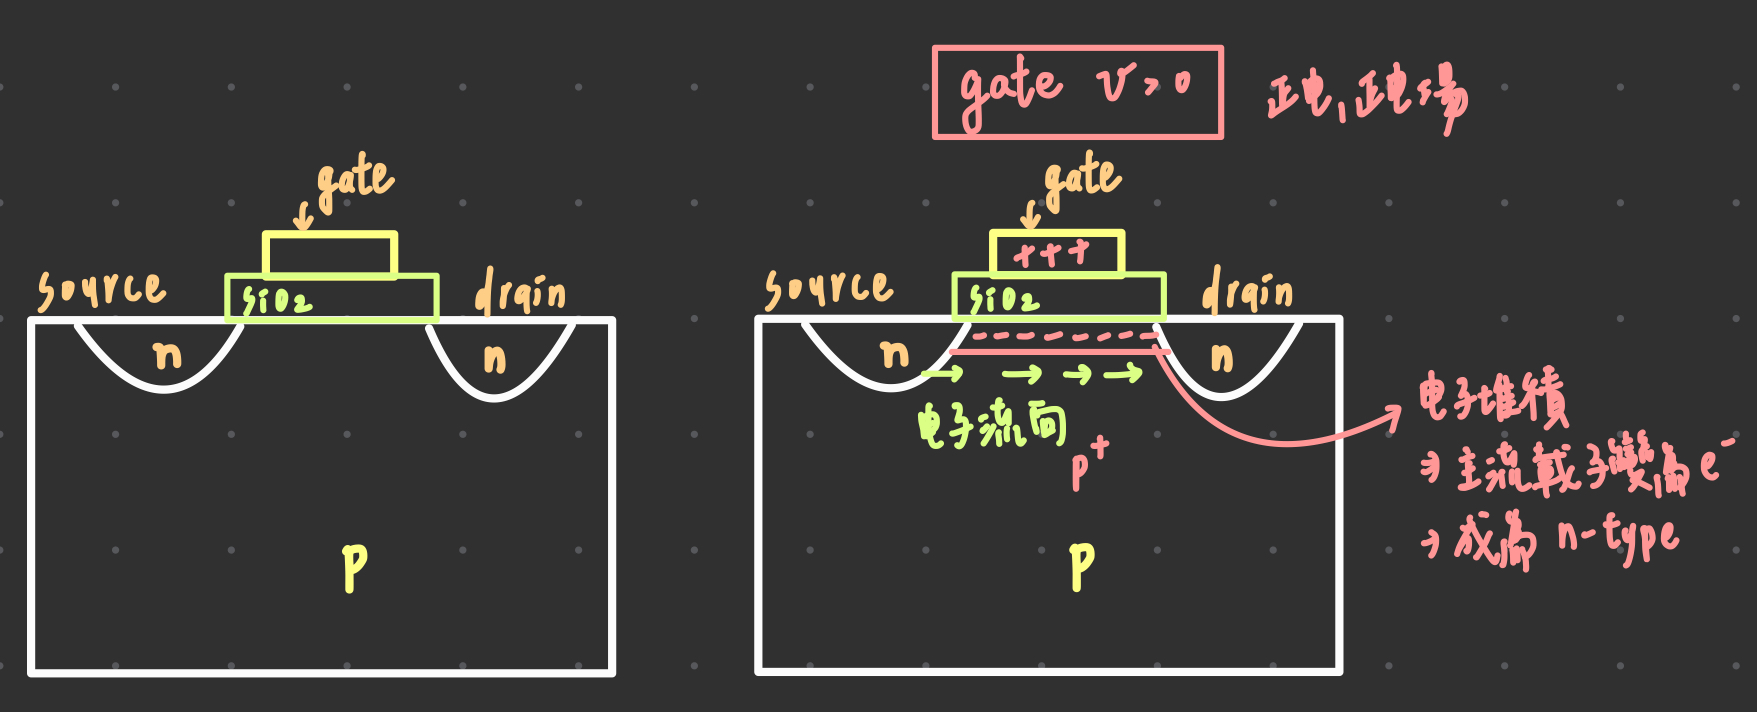 gate
source
SiO2
drain
n
n
p
gate V>0
正电,正电場
gate
+++
source
SiO2
drain
n
n
电子流向
p+
p
电子堆積
→主流載子變為e-
→成為 n-type